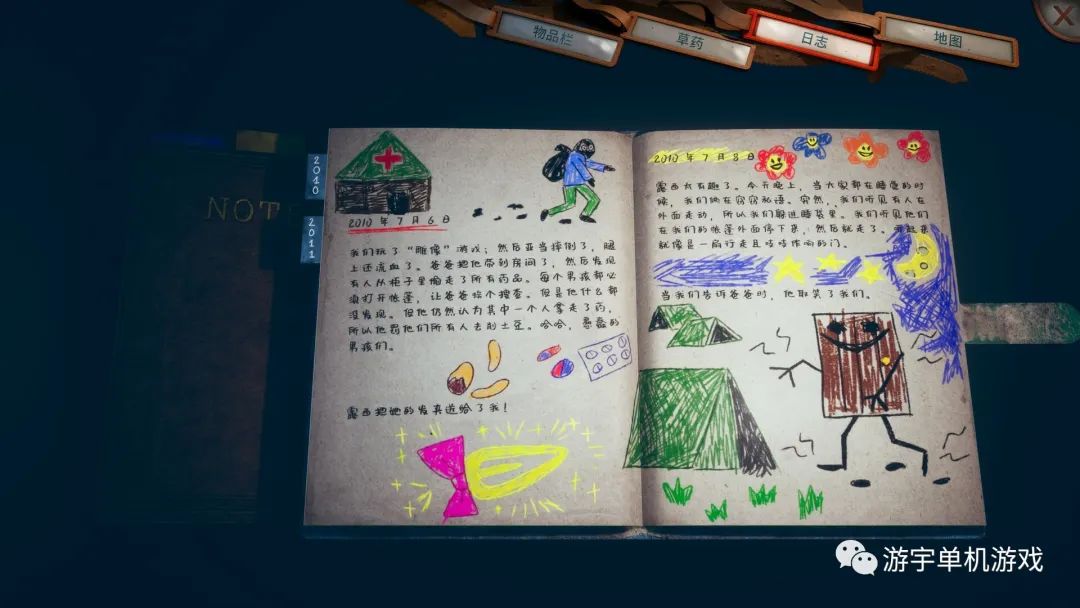 物品栏
草药
日志
地图
2010
2011
NOT
2010年7月6日
我们玩了“雕像”游戏；然后亚当摔倒了，腿
上还流血了。爸爸把他带到房间了，然后发现
有人从柜子里偷走了所有药品。每个男孩都必
须打开帐篷，让爸爸挨个搜查。但是他什么都
没发现。但他仍然认为其中一个人拿走了药，
所以他罚他们所有人去削土豆。哈哈，愚蠢的
男孩们。
露西把她的发夹送给了我！
2010年7月8日
露西太有趣了。今天晚上，当大家都在睡觉的时
候，我们俩在窃窃私语。突然，我们听见有人在
外面走动，所以我们躲进睡袋里。我们听见他们
在我们的帐篷外面停下来，然后就走了。听起来
就像是一扇行走且吱吱作响的门。
当我们告诉爸爸时，他取笑了我们。
游宇单机游戏